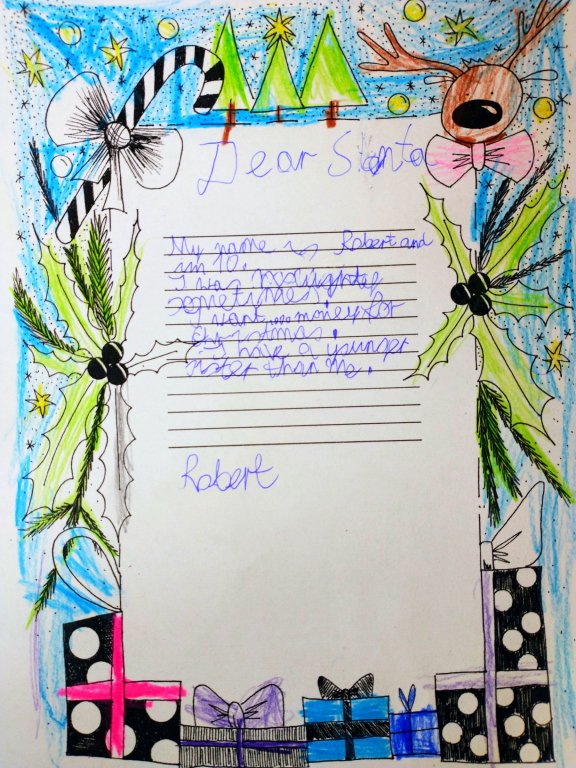 Dear Santa
My name is Robert and
im 10.
I was
sometimes.
I want money for
Christmas.
I have a younger
sister than me.
Robert